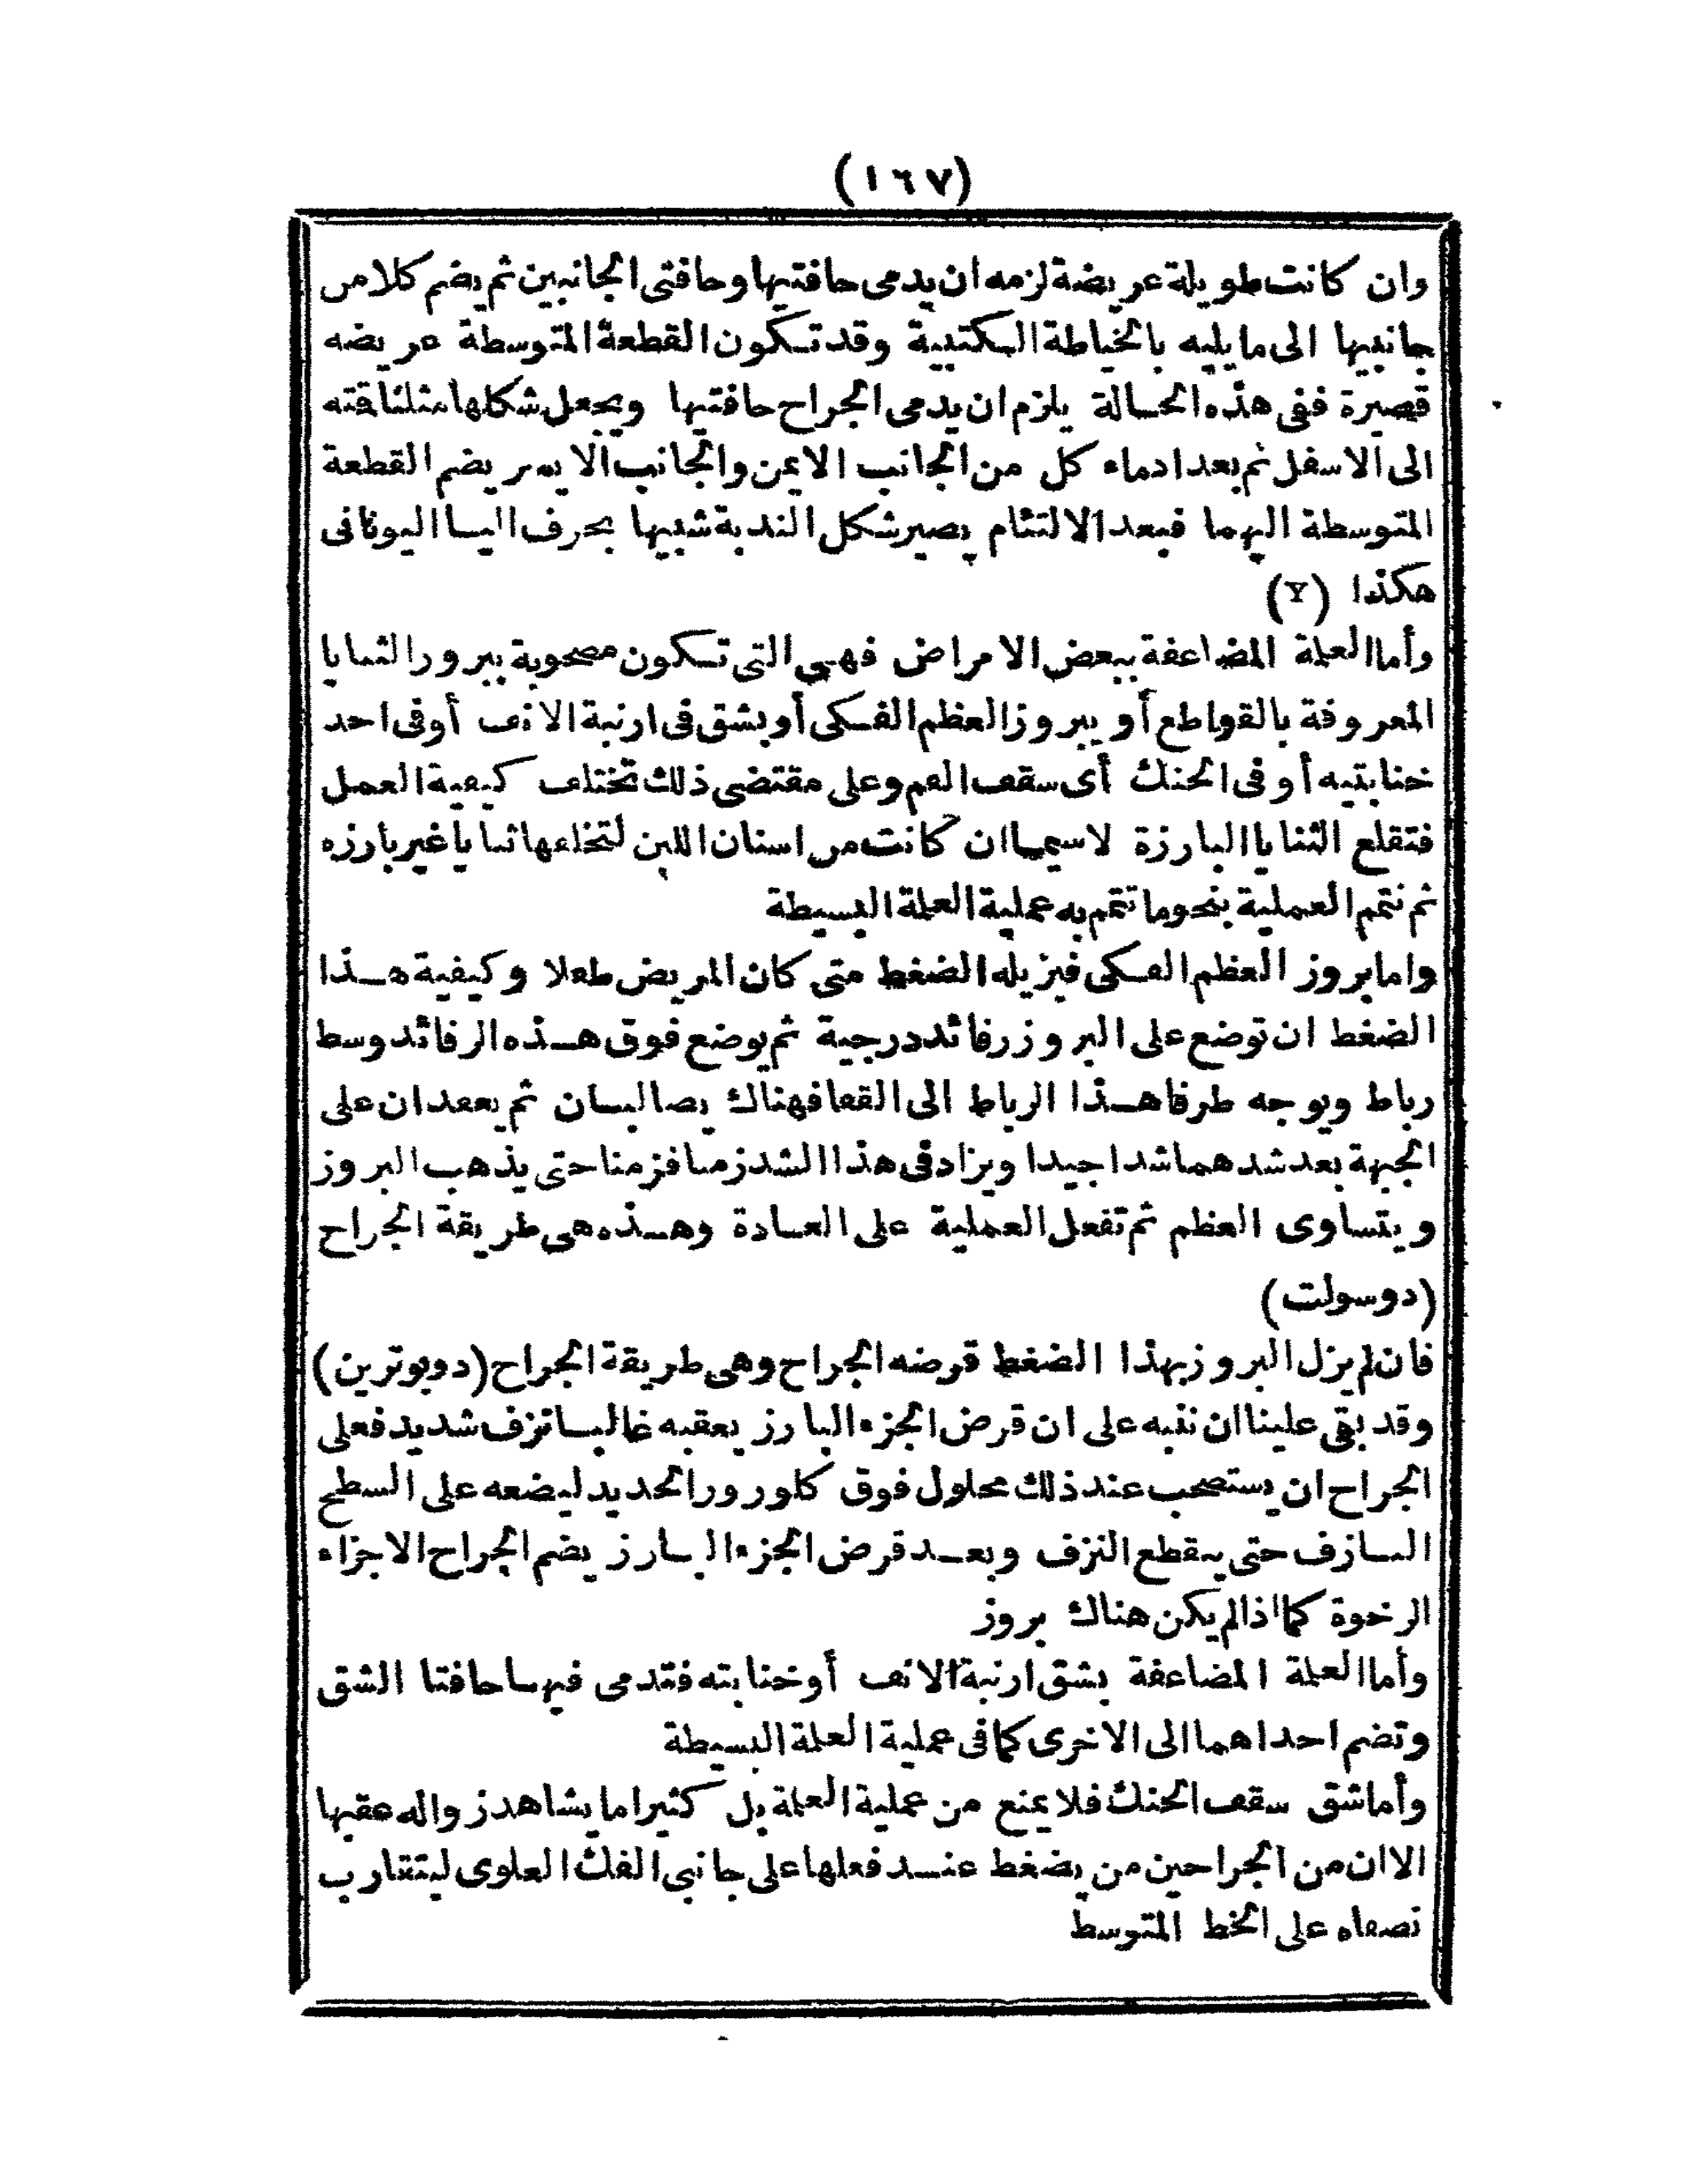 (١٦٧)
وان كانت طويلة عريضة لزمه ان يدمى حافتيها وحافتى الجانبين ثم يضم كلا من
جانبيها الى ما يليه بالخياطة المكتبية وقد تكون القطعة المتوسطة عريضه
قصيرة ففى هذه الحالة يلزم ان يدمى الجراح حافتيها ويجعل شكلها مثلثا قته
الى الاسفل ثم بعد ادماء كل من الجانب الايمن والجانب الايسر يضم القطعة
المتوسطة اليهما فبعد الالتئام يصير شكل الندبة شبيها بحرف اليسا اليونانى
هكذا (Y)
وأما العلة المضاعفة ببعض الامراض فهى التى تكون مصحوبة ببروز الثنايا
المعروفة بالقواطع أو ببروز العظم الفكى أو بشق فى ارنبة الانف أوفى احد
خنابتيه أو فى الحنك أى سقف الفم وعلى مقتضى ذلك تختلف كيفية العمل
فتقلع الثنايا البارزة لاسيما ان كانت من اسنان اللبن لتخلفها ثنايا غير بارزه
ثم تتمم العملية بنحو ما تتمم به عملية العلة البسيطة
واما بروز العظم الفكى فيزيله الضغط متى كان المريض طفلا وكيفية هذا
الضغط ان توضع على البروز رفائد درجية ثم يوضع فوق هذه الرفائد وسط
رباط ويوجه طرفا هذا الرباط الى القفا فهناك يصالبان ثم يعقدان على
الجبهة بعد شدهما شدا جيدا ويزاد فى هذا الشد زمنا فزمنا حتى يذهب البروز
ويتساوى العظم ثم تفعل العملية على العادة وهذه هى طريقة الجراح
(دوسولت)
فان لم يزل البروز بهذا الضغط قرضه الجراح وهى طريقة الجراح (دوبوترين)
وقد بقى علينا ان ننبه على ان قرض الجزء البارز يعقبه غالبا نزف شديد فعلى
الجراح ان يستصحب عند ذلك محلول فوق كلورور الحديد ليضعه على السطح
النازف حتى ينقطع النزف وبعد قرض الجزء البارز يضم الجراح الاجزاء
الرخوة كما اذا لم يكن هناك بروز
وأما العلة المضاعفة بشق ارنبة الانف أو خنابته فتدمى فيها حافتا الشق
وتضم احداهما الى الاخرى كما فى عملية العلة البسيطة
وأما شق سقف الحنك فلا يمنع من عملية العلة بل كثيرا ما يشاهد زواله عقبها
الا ان من الجراحين من يضغط عند فعلها على جانبى الفك العلوى ليتقارب
نصفاه على الخط المتوسط